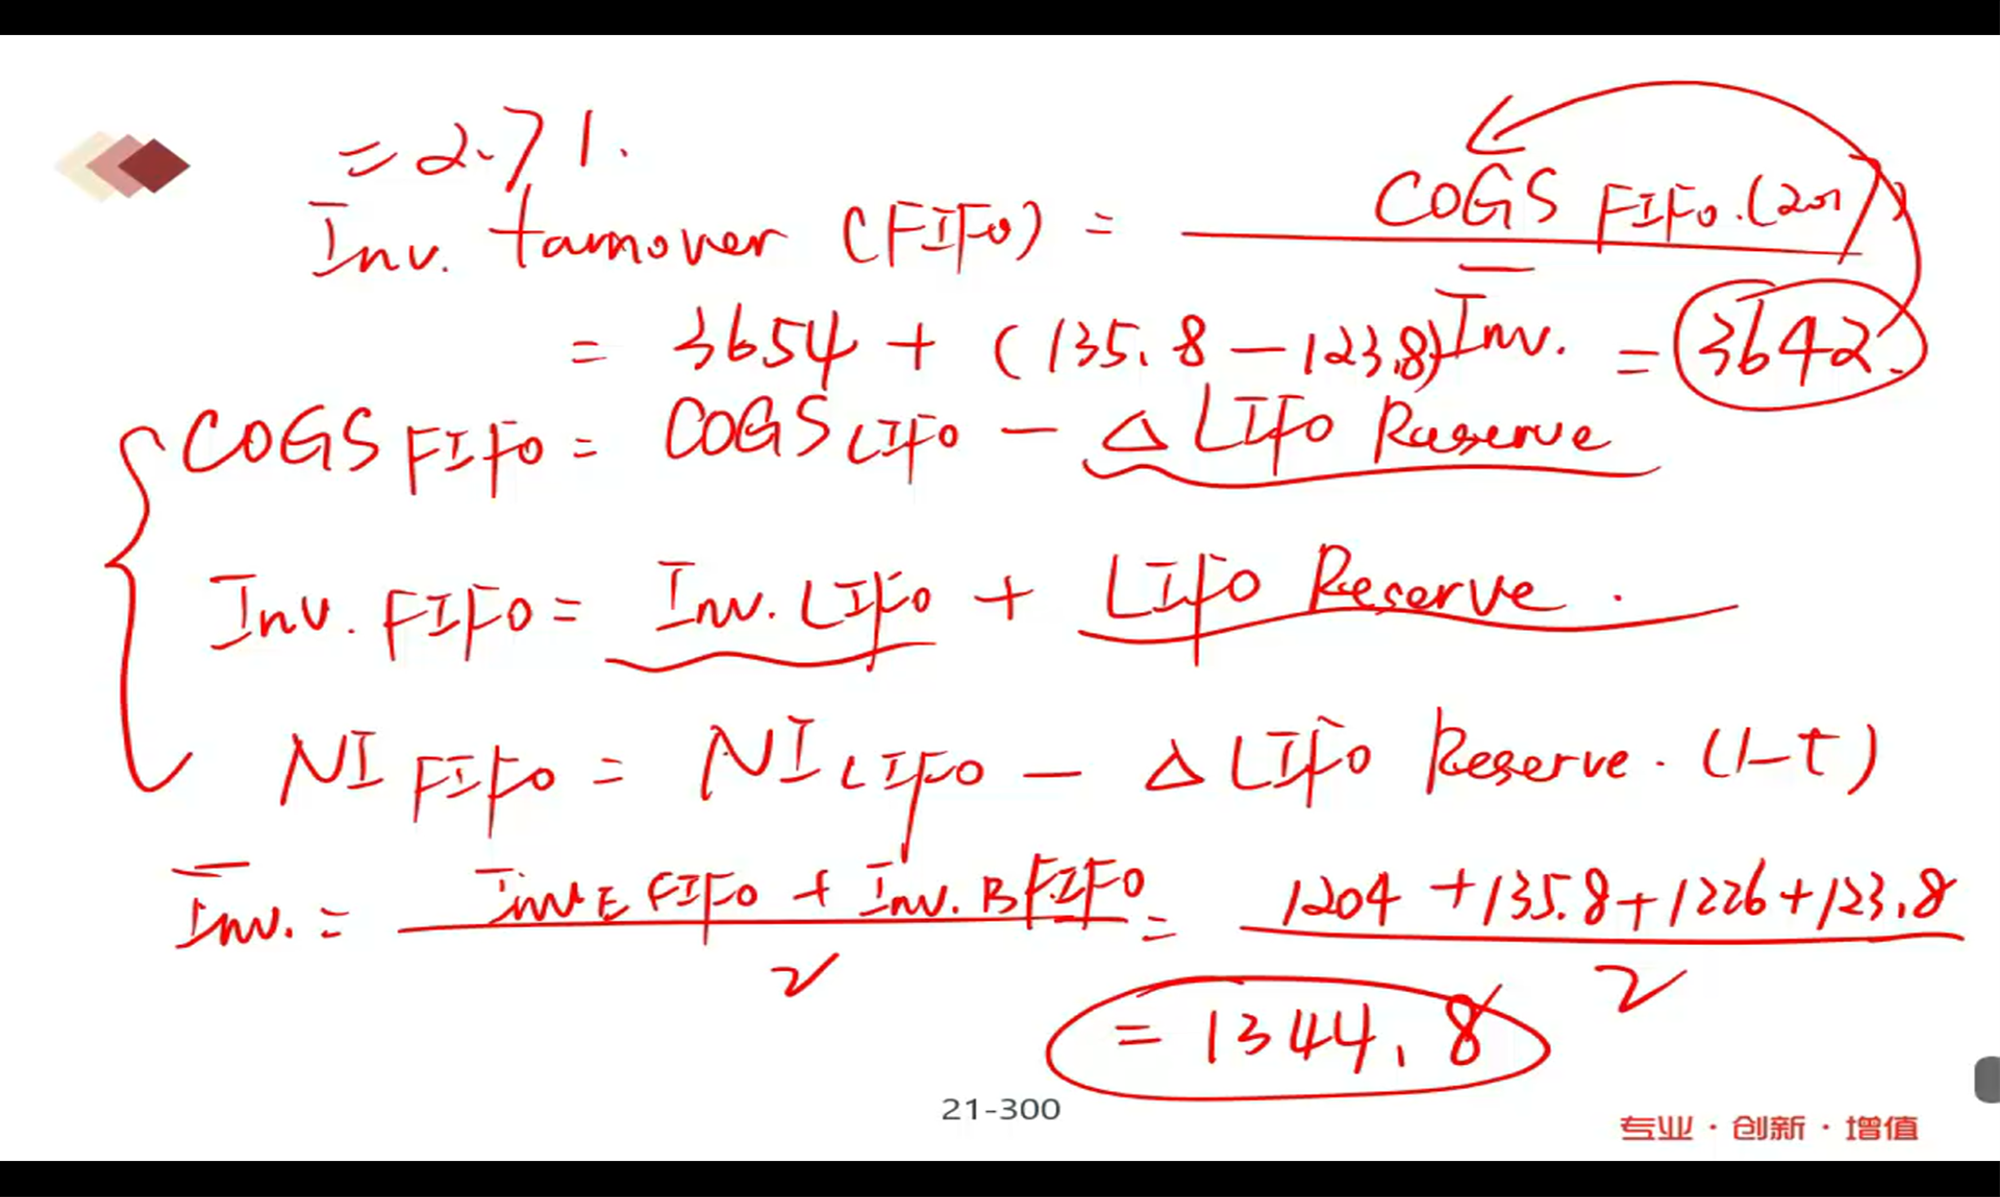 = 2.71.
Inv. turnover (FIFO) = COGS FIFO.(2017) / Inv.
= 3654 + (135.8 - 123.8) = 3642.
COGS FIFO = COGS LIFO - Δ LIFO Reserve
Inv. FIFO = Inv. LIFO + LIFO Reserve.
NI FIFO = NI LIFO - Δ LIFO Reserve. (1-t)
Inv. = Inv. E FIFO + Inv. B FIFO / 2 = 1204 + 135.8 + 1226 + 123.8 / 2
= 1344.8
21-300
专业·创新·增值